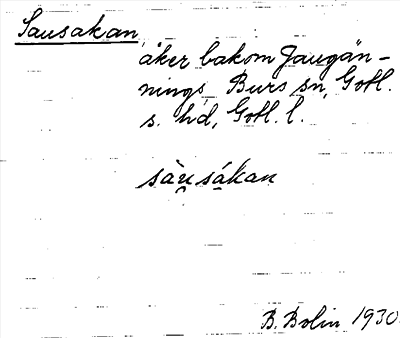 Sausakan,
åker bakom Jaugän-
nings, Burs sn, Gotl.
s. hd, Gotl. l.
sàu̯sákan
B. Bolin 1930.